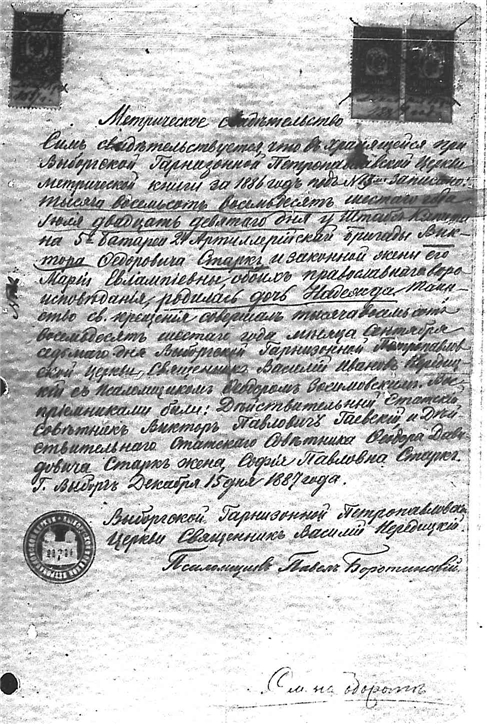 Метрическое свидѣтельство
Симъ свидѣтельствуется что въ хранящейся при
Выборгской Гарнизонной Петропавловской Церкви
метрической книги за 1886 годъ подъ № записано:
тысяча восемьсотъ восемьдесятъ шестаго года
Іюля двадцать девятаго дня у Штабсъ Капита
на 5й батареи 24 Артиллерійской бригады Вик
тора Ѳедоровича Старкъ и законной жены его
Маріи Евлампіевны, обоихъ православнаго вѣро
исповѣданія, родилась дочь Надежда. Таин
ство св. крещенія совершалъ тысяча восемьсотъ
восемьдесятъ шестаго года, мѣсяца Сентября
седьмаго дня Выборгской Гарнизонной Петропавлов
ской Церкви, Священникъ Василій Ивановъ Нередиц
кій съ Псаломщикомъ Ѳеодоромъ Вос
пріемниками были: Дѣйствительный Статскій
Совѣтникъ Викторъ Павловичъ Гаевскій и Дѣй
ствительнаго Статскаго Совѣтника Ѳедора Давы
довича Старкъ жена, Софія Павловна Старкъ.
Г. Выборгъ Декабря 15 дня 1887 года.
Выборгской Гарнизонной Петропавловской
Церкви Священникъ Василій Нередицкій.
Псаломщикъ Павелъ
См. на оборотѣ